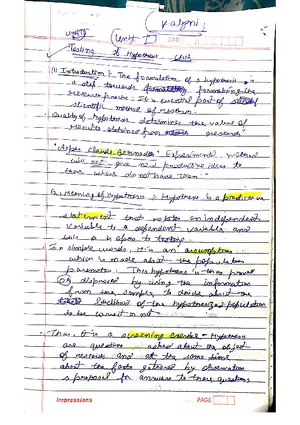 Kalyani
Unit
Testing of Hypothesis
(1) Introduction :- The formulation of a hypothesis is
a step towards formalising the
research process - It is essential part of
scientific method of research.
Quality of hypothesis determines the value of
results obtained from research
"As per Claude Bernadte" Experimental method
will not give new productive idea to
them who do not have them."
Meaning of Hypothesis :- Hypothesis is a predictive
statement that relates an independent
variable to a dependent variable and
In simple words it is an assumption
which is made about the population
parameter. This hypothesis is then proved
or disproved by using the information
from the sample to decide about the
likelihood of the hypothesized population
to be correct or not
Thus it is a screening exercise - Hypothesis
are questions asked about the object
of research and at the same time
about the facts gathered by observation
a proposal for answers to these questions
Impressions
PAGE